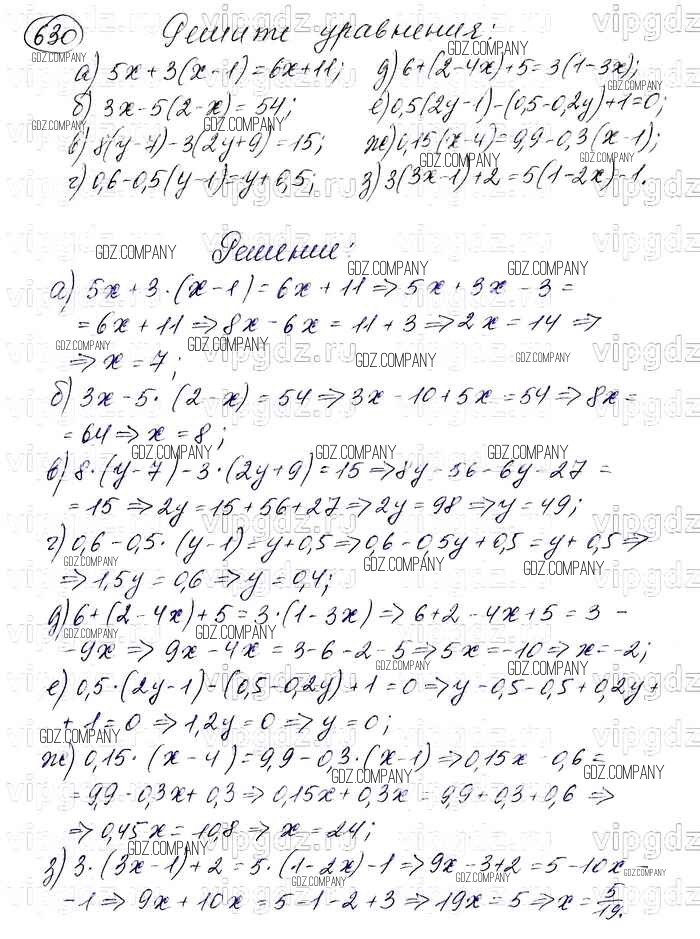 630 Решите уравнения:
а) 5x+3(x-1)=6x+11; д) 6+(2-4x)+5=3(1-3x);
б) 3x-5(2-x)=54; е) 0,5(2y-1)-(0,5-0,2y)+1=0;
в) 8(y-7)-3(2y+9)=15; ж) 0,15(x-4)=9,9-0,3(x-1);
г) 0,6-0,5(y-1)=y+0,5; з) 3(3x-1)+2=5(1-2x)-1.
Решение:
а) 5x+3·(x-1)=6x+11⇒5x+3x-3=
=6x+11⇒8x-6x=11+3⇒2x=14⇒
⇒x=7;
б) 3x-5·(2-x)=54⇒3x-10+5x=54⇒8x=
=64⇒x=8;
в) 8·(y-7)-3·(2y+9)=15⇒8y-56-6y-27=
=15⇒2y=15+56+27⇒2y=98⇒y=49;
г) 0,6-0,5·(y-1)=y+0,5⇒0,6-0,5y+0,5=y+0,5⇒
⇒1,5y=0,6⇒y=0,4;
д) 6+(2-4x)+5=3·(1-3x)⇒6+2-4x+5=3-
-9x⇒9x-4x=3-6-2-5⇒5x=-10⇒x=-2;
е) 0,5·(2y-1)-(0,5-0,2y)+1=0⇒y-0,5-0,5+0,2y+
+1=0⇒1,2y=0⇒y=0;
ж) 0,15·(x-4)=9,9-0,3·(x-1)⇒0,15x-0,6=
=9,9-0,3x+0,3⇒0,15x+0,3x=9,9+0,3+0,6⇒
⇒0,45x=10,8⇒x=24;
з) 3·(3x-1)+2=5·(1-2x)-1⇒9x-3+2=5-10x-
-1⇒9x+10x=5-1-2+3⇒19x=5⇒x=5/19.